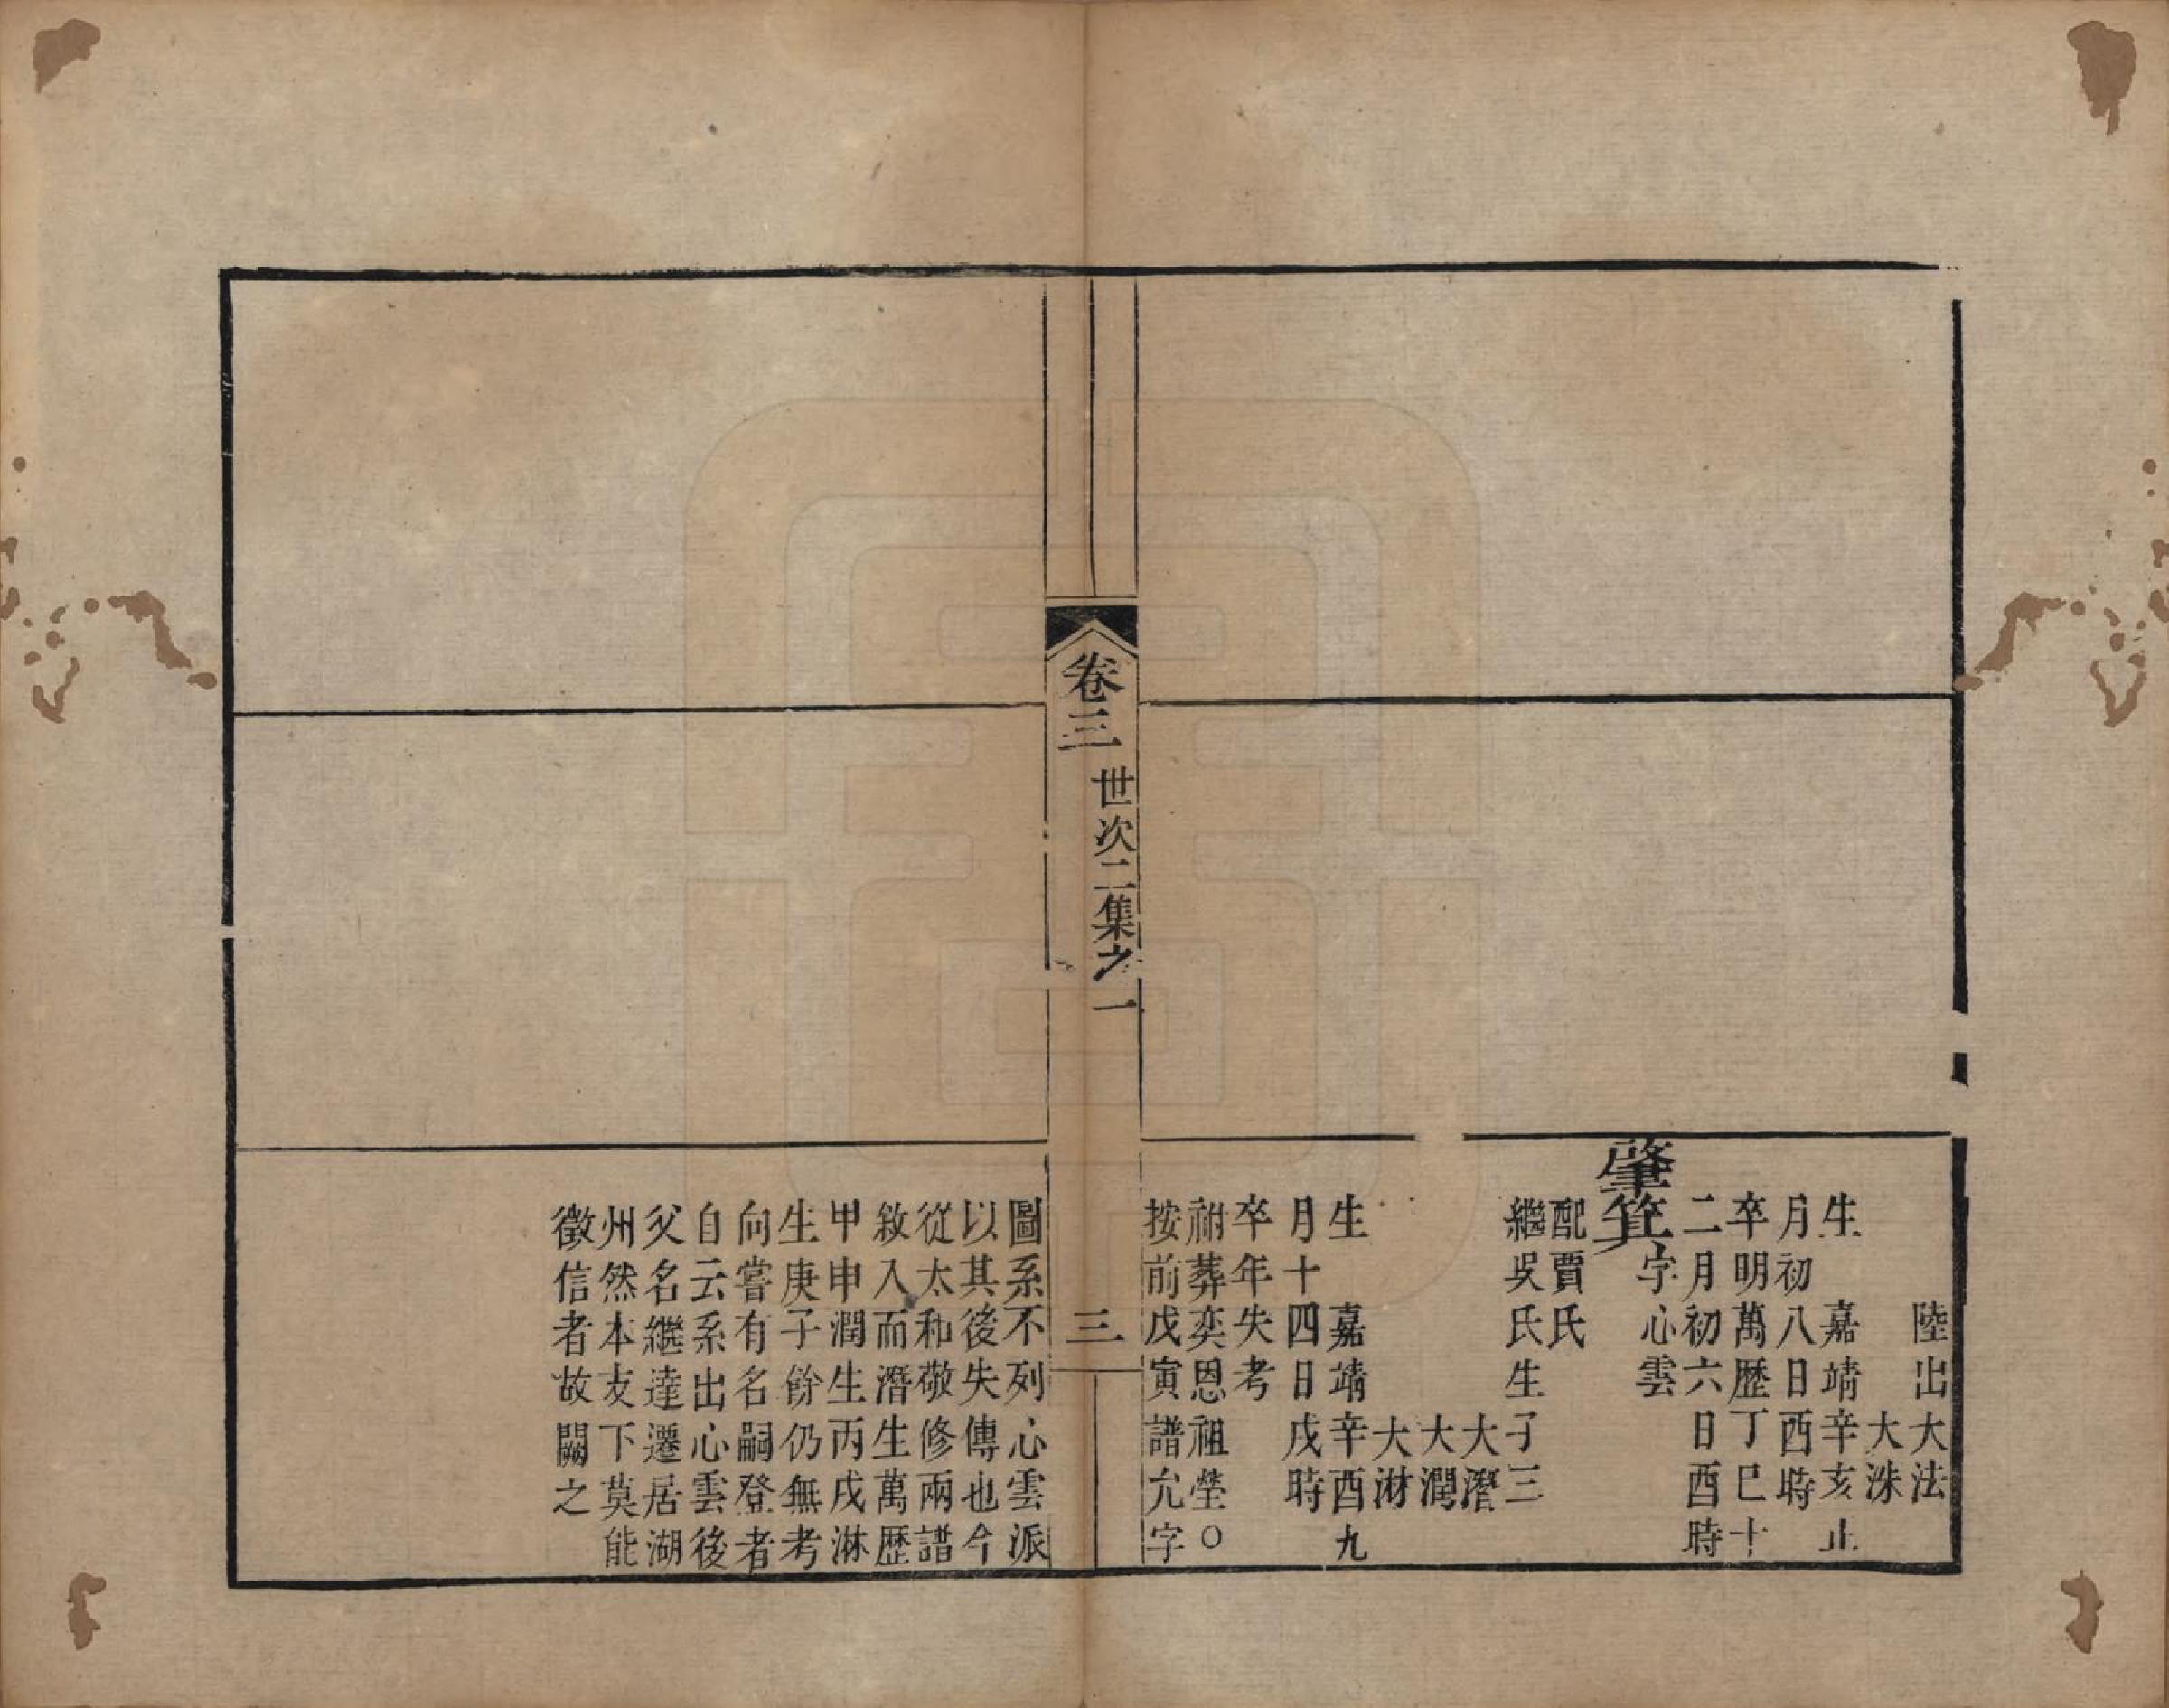 陸出大法
大洙
生 嘉靖辛亥止
月初八日酉時
卒明萬歷丁巳十
二月初六日酉時
肇箕字心雲
配賈氏
繼吳氏生子三
大潛
大潤
大淋
生 嘉靖辛酉九
月十四日戌時
卒年失考
祔葬奕恩祖塋○
按前戊寅譜允字
卷三 世次二集之一
三
圖系不列心雲派
以其後失傳也今
從太和敬修兩譜
敘入而潛生萬歷
甲申潤生丙戌淋
生庚子餘仍無考
向嘗有名嗣登者
自云系出心雲後
父名繼達遷居湖
州然本支下莫能
徵信者故闕之